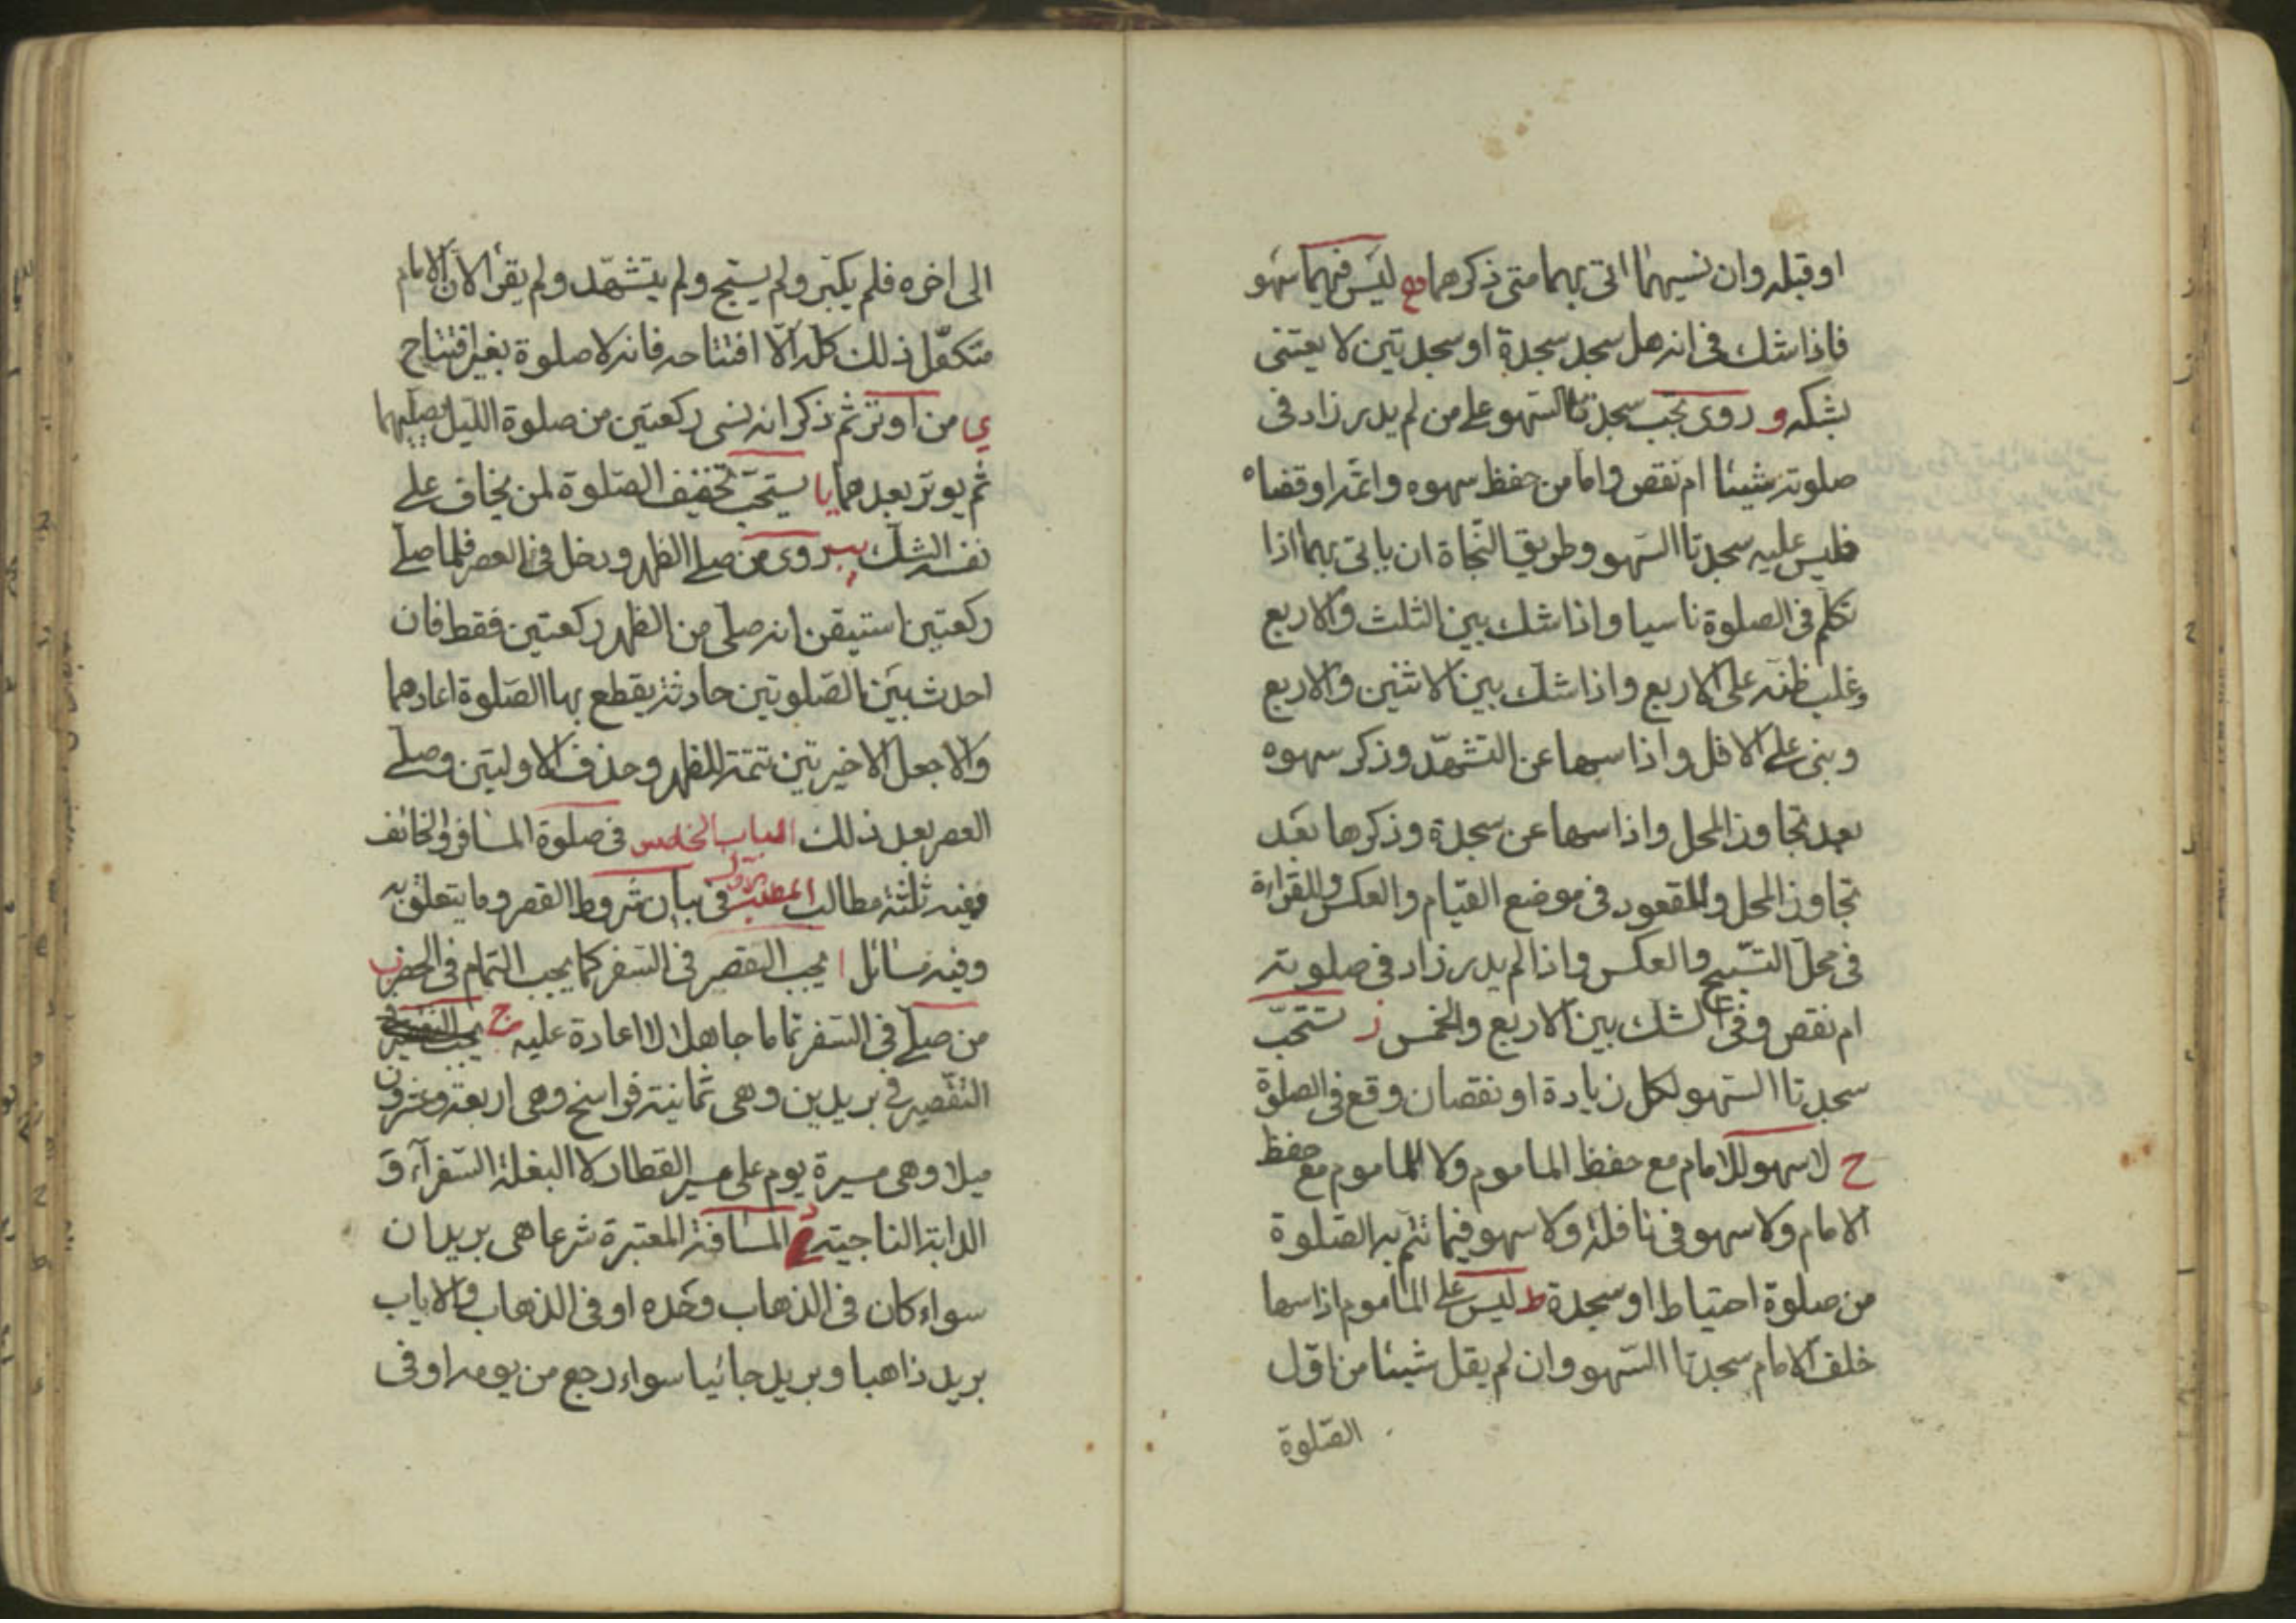 او قبله وان نسيهما اتى بهما متى ذكرهما ليس فيهما سهو
فاذا شك فى انه هل سجد سجدة او سجدتين لا يعتنى
بشكه و روى تجب سجدتا السهو على من لم يدر زاد فى
صلوته شيئا ام نقص واما من حفظ سهوه واتمه او قضاه
فليس عليه سجدتا السهو وطريق النجاة ان ياتى بهما اذا
تكلم فى الصلوة ناسيا واذا شك بين الثلث والاربع
وغلب ظنه على الاربع واذا شك بين الاثنين والاربع
وبنى على الاقل واذا سها عن التشهد وذكر سهوه
بعد تجاوز المحل واذا سها عن سجدة وذكرها بعد
تجاوز المحل وللقعود فى موضع القيام والعكس وللقراءة
فى محل التسبيح والعكس واذا لم يدر زاد فى صلوته
ام نقص وفى الشك بين الاربع والخمس ز تستحب
سجدتا السهو لكل زيادة او نقصان وقع فى الصلوة
ح لا سهو للامام مع حفظ الماموم ولا للماموم مع حفظ
الامام ولا سهو فى نافلة ولا سهو فيما تتم به الصلوة
من صلوة احتياط او سجدة ط ليس على الماموم اذا سها
خلف الامام سجدتا السهو وان لم يقل شيئا من اول
الصلوة
الى اخره فلم يكبر ولم يسبح ولم يتشهد ولم يقرأ لان الامام
متكفل ذلك كله الا افتتاحه فانه لا صلوة بغير افتتاح
ي من اوتر ثم ذكر انه نسى ركعتين من صلوة الليل فصليهما
ثم يوتر بعدهما يا يستحب تخفيف الصلوة لمن يخاف على
نفسه الشك يب روى من صلى الظهر ودخل فى العصر فلما صلى
ركعتين استيقن انه صلى من الظهر ركعتين فقط فان
احدث بين الصلوتين حادثة يقطع بها الصلوة اعادهما
والا جعل الاخيرتين تتمة للظهر وحذف الاولتين وصلى
العصر بعد ذلك الباب الخامس فى صلوة المسافر والخائف
ففيه ثلثة مطالب المطلب الاول فى بيان شروط القصر وما يتعلق به
وفيه مسائل ا يجب التقصير فى السفر كما يجب التمام فى الحضر ب
من صلى فى السفر تماما جاهلا لا اعادة عليه ج يجب
التقصير فى بريدين وهى ثمانية فراسخ وهى اربعة وعشرون
ميلا وهى مسيرة يوم على سير القطار لا البغلة السفرآء و
الدابة الناجية د المسافة المعتبرة شرعا هى بريدان
سواء كان فى الذهاب وحده او فى الذهاب والاياب
بريد ذاهبا وبريد جائيا سواء رجع من يومه او فى